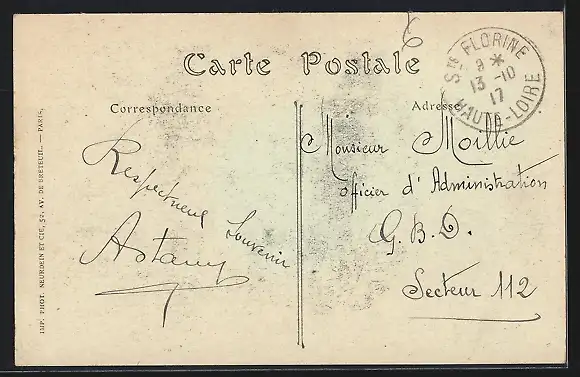 6
Carte Postale
Ste FLORINE
9 *
13 -10
17
HAUTE-LOIRE
Correspondance
Adresse
Respectueux
Souvenir
Monsieur Moillie
officier d' Administration
G. B. D.
Secteur 112
IMP. PHOT. NEURDEIN ET CIE, 52, AV. DE BRETEUIL. — PARIS.